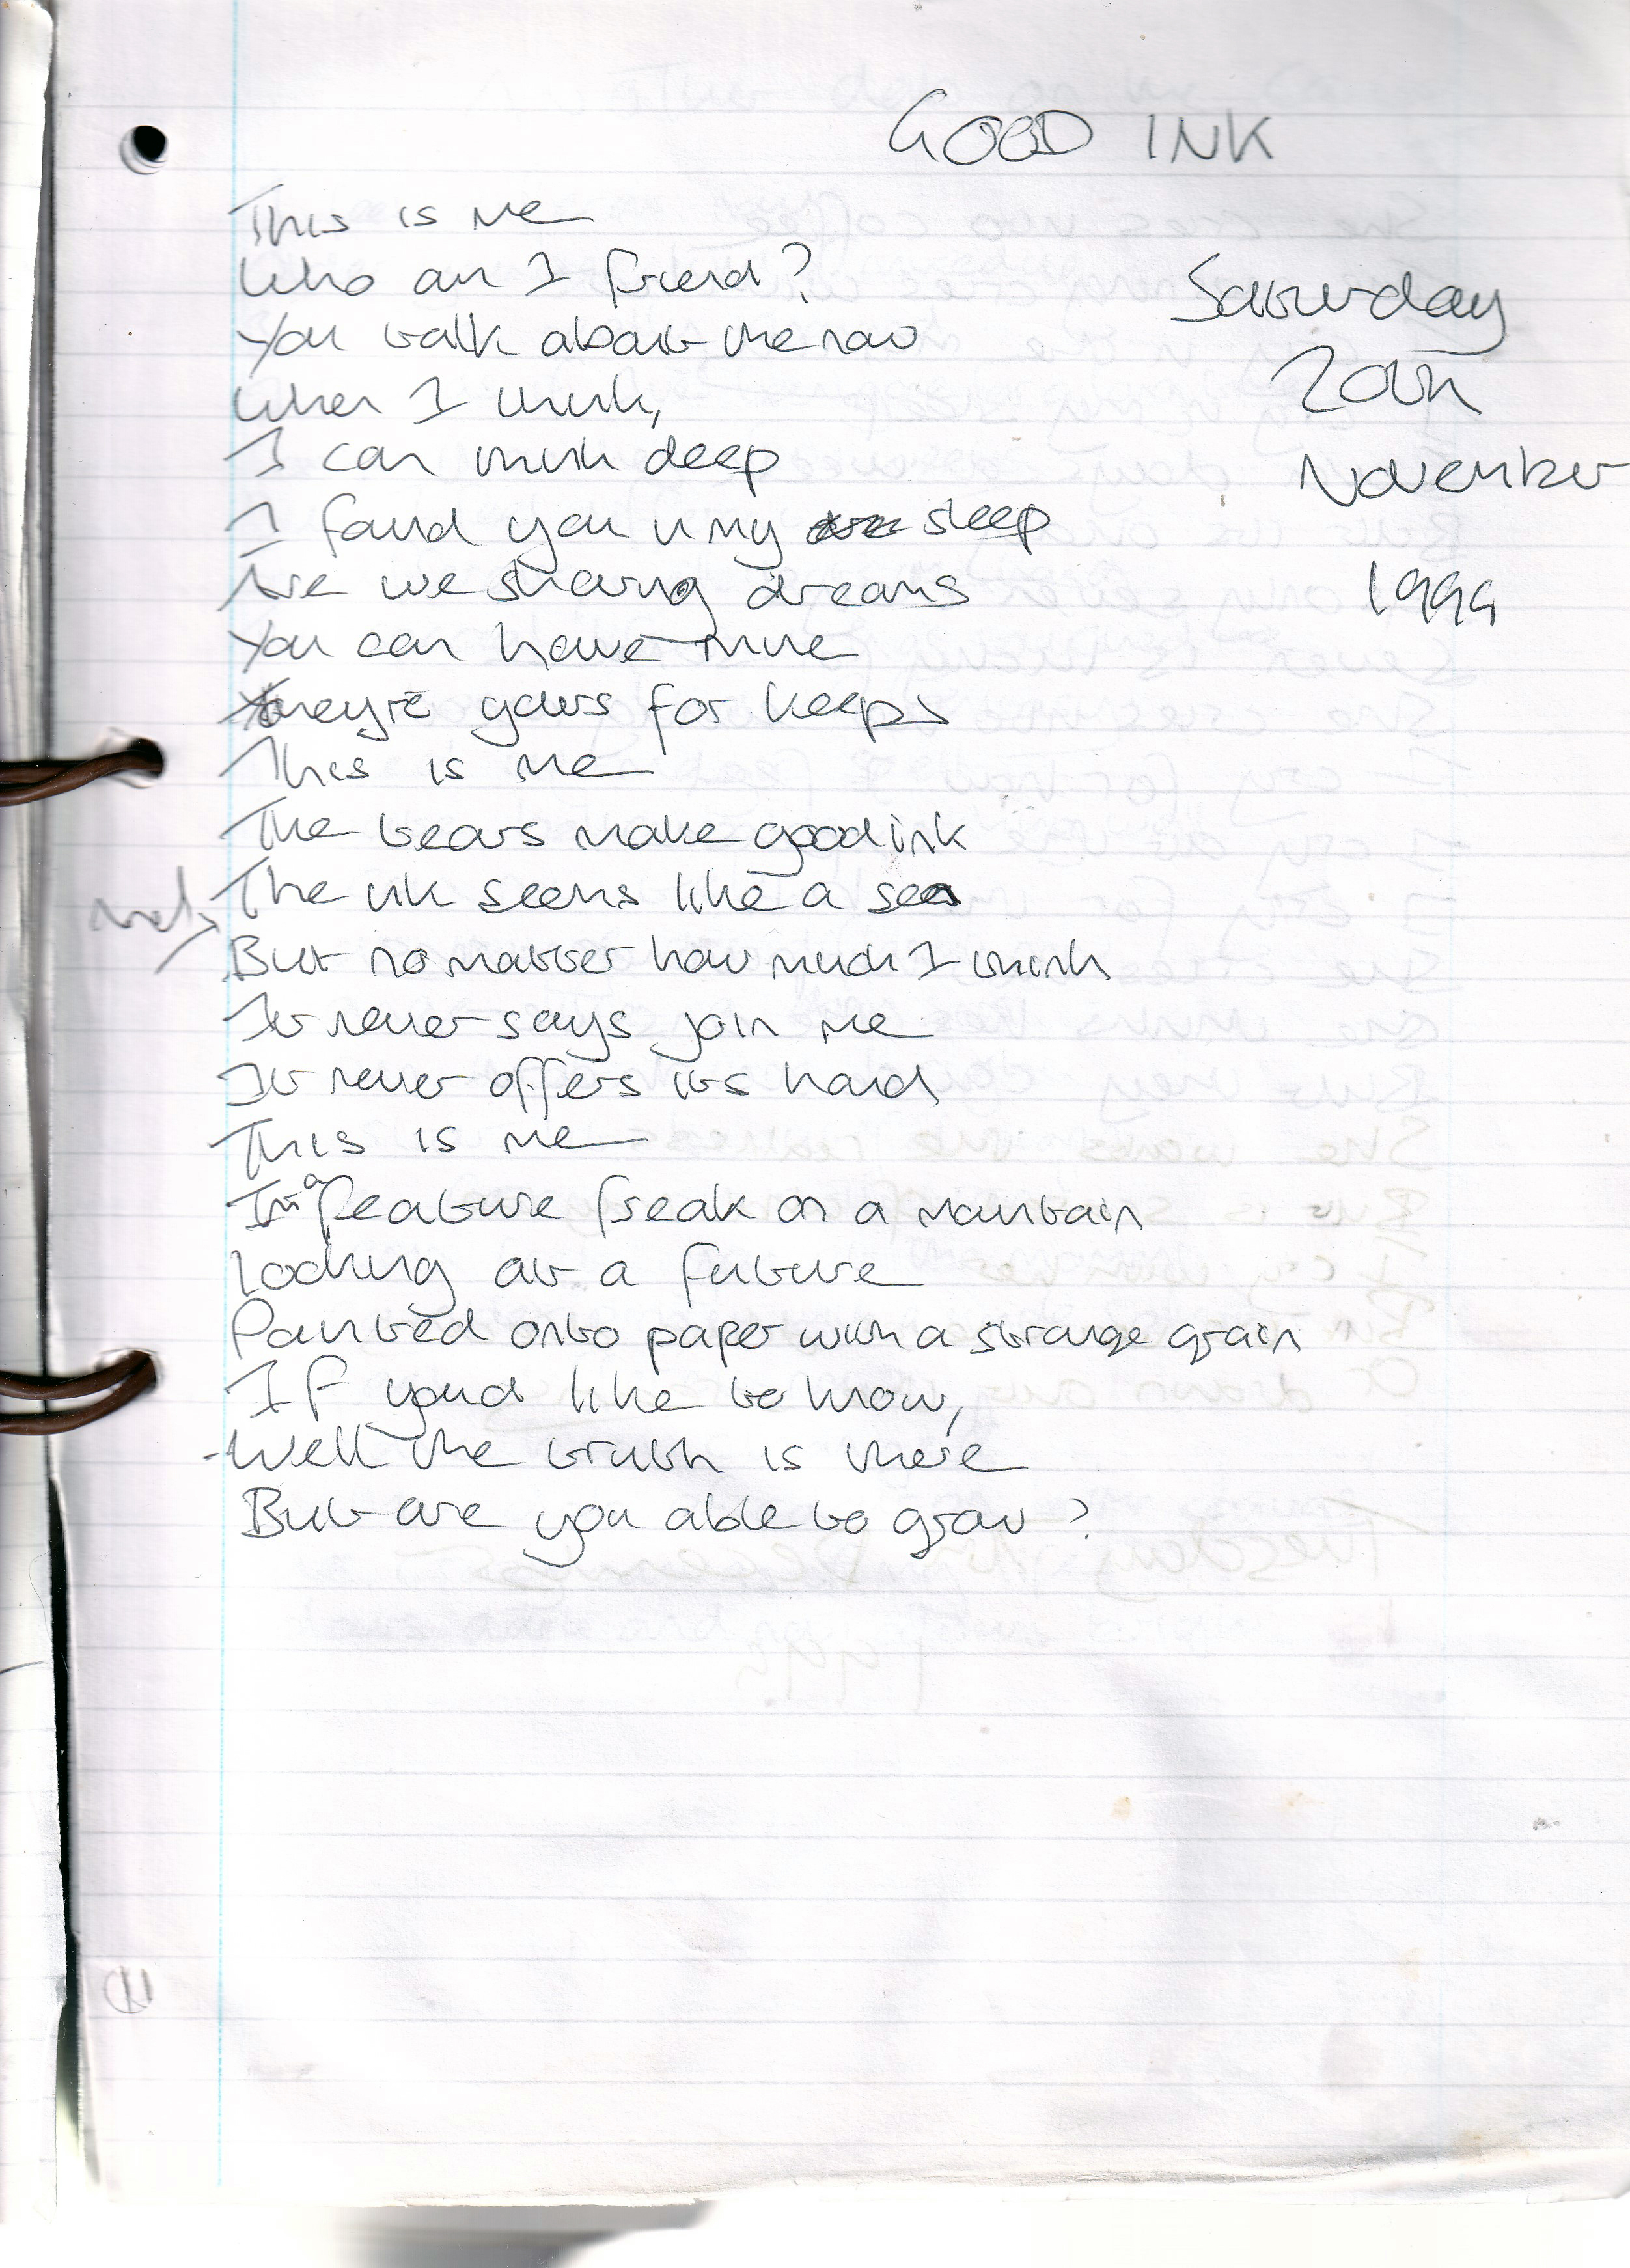 GOOD INK
This is me
Who am I friend?
You talk about me now
When I think,
I can think deep
I found you in my sleep
Are we sharing dreams
You can have mine
They're yours for keeps
This is me
The tears make good ink
The ink seems like a sea
But no matter how much I think
It never says join me
It never offers its hand
This is me
I'm a feature freak on a mountain
Looking at a future
Painted onto paper with a strange grain
If you'd like to know,
Well the truth is there
But are you able to grow?
Saturday
20th
November
1999